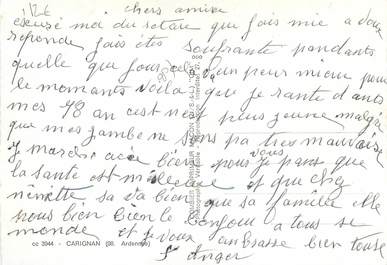 chers amise
excusé moi du retare que jais mie a vous
reponde jais etes soufrante pandants
quelle que jour cela va un peux mieux pour
le momants voila que je rante dants
mes 78 an cest nest plus jeune malgré
que mes jambe ne sons pa tres mauvaise
je marche acée bien pour vous je panse que
la santé est meilleure et que chez
ninette sa va bien que sa famille elle
nous bien bien le bonjour a tous le
monde et je vous ambrasse bien touse
Anger
cc 3944 - CARIGNAN (08. Ardennes)